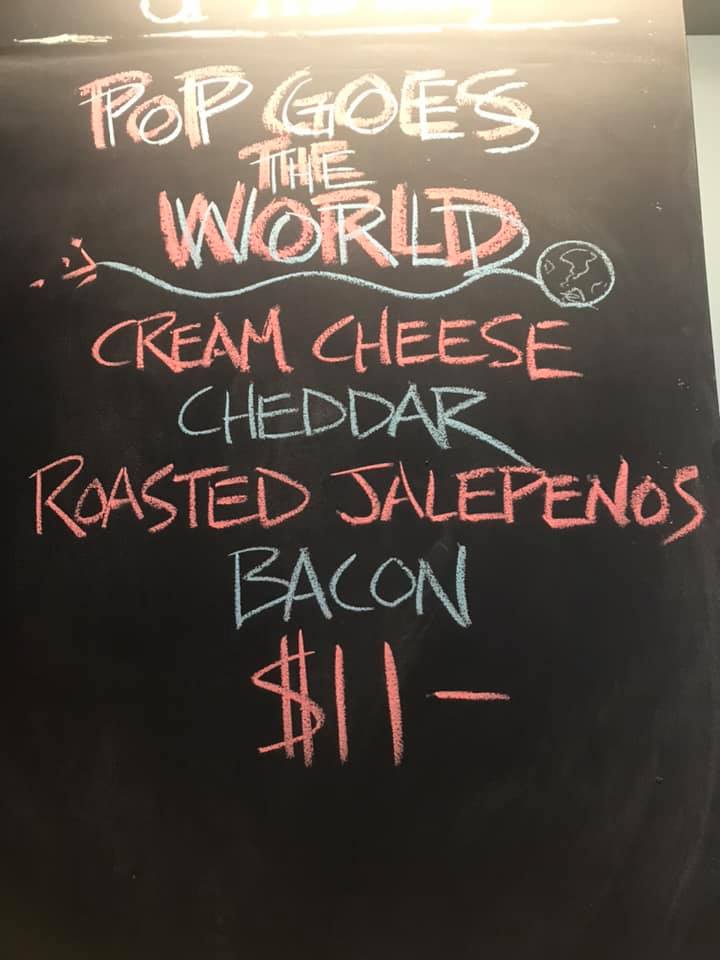 POP GOES
THE
WORLD
CREAM CHEESE
CHEDDAR
ROASTED JALEPENOS
BACON
$11-